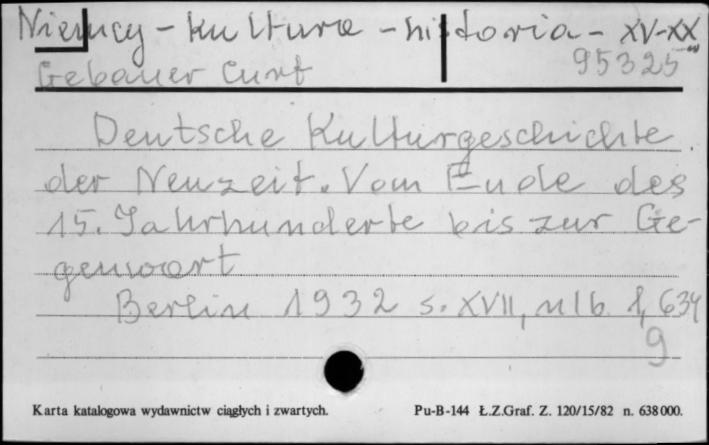 Niemcy - kultura - historia - XV-XX w
Gebauer Curt 95325
Deutsche Kulturgeschichte
der Neuzeit. Vom Ende des
15. Jahrhunderte bis zur Ge-
genwart
Berlin 1932 s. XVII, nlb. 1, 634
9
Karta katalogowa wydawnictw ciągłych i zwartych. Pu-B-144 Ł.Z.Graf. Z. 120/15/82 n. 638000.